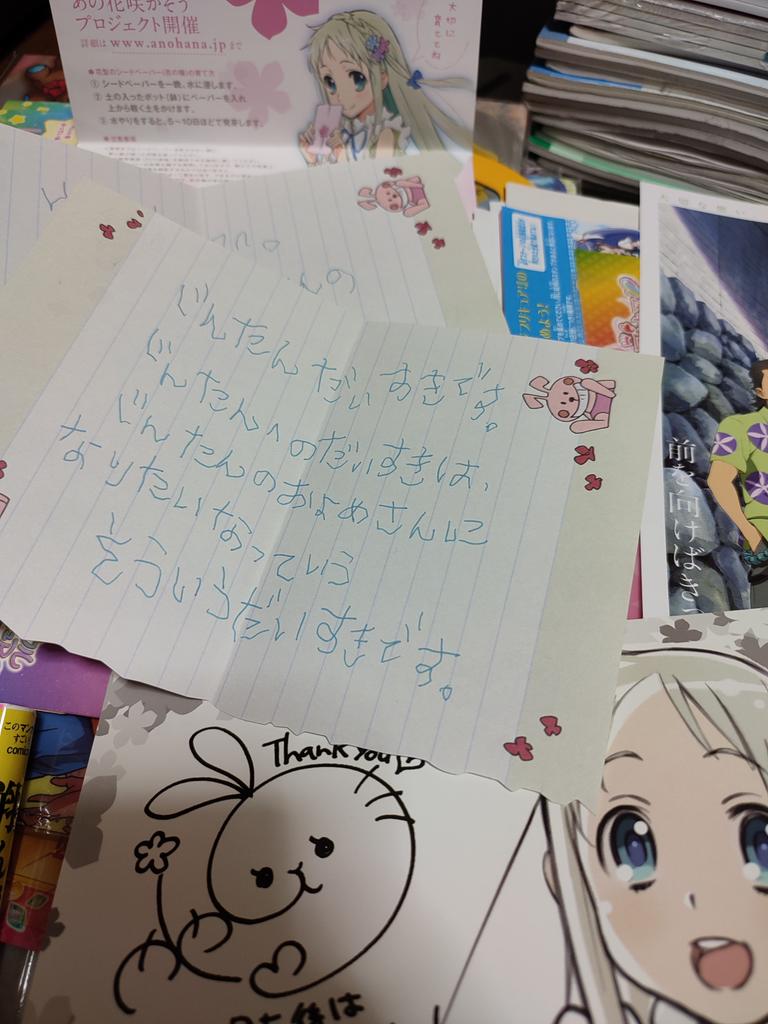 あの花咲かそう
プロジェクト開催
詳細は www.anohana.jp まで
大切に
育ててね
●花型のシードペーパー(花の種)の育て方
① シードペーパーを一晩、水に浸します。
② 土の入ったポット(鉢)にペーパーを入れ
上から軽く土をかけます。
③ 水やりをすると、5〜10日ほどで発芽します。
んの
じんたんだいすきです。
じんたんへのだいすきは、
じんたんのおよめさんに
なりたいなっていう
そういうだいすきです。
前を向けばき
Thank You
このマン
すごい
comic